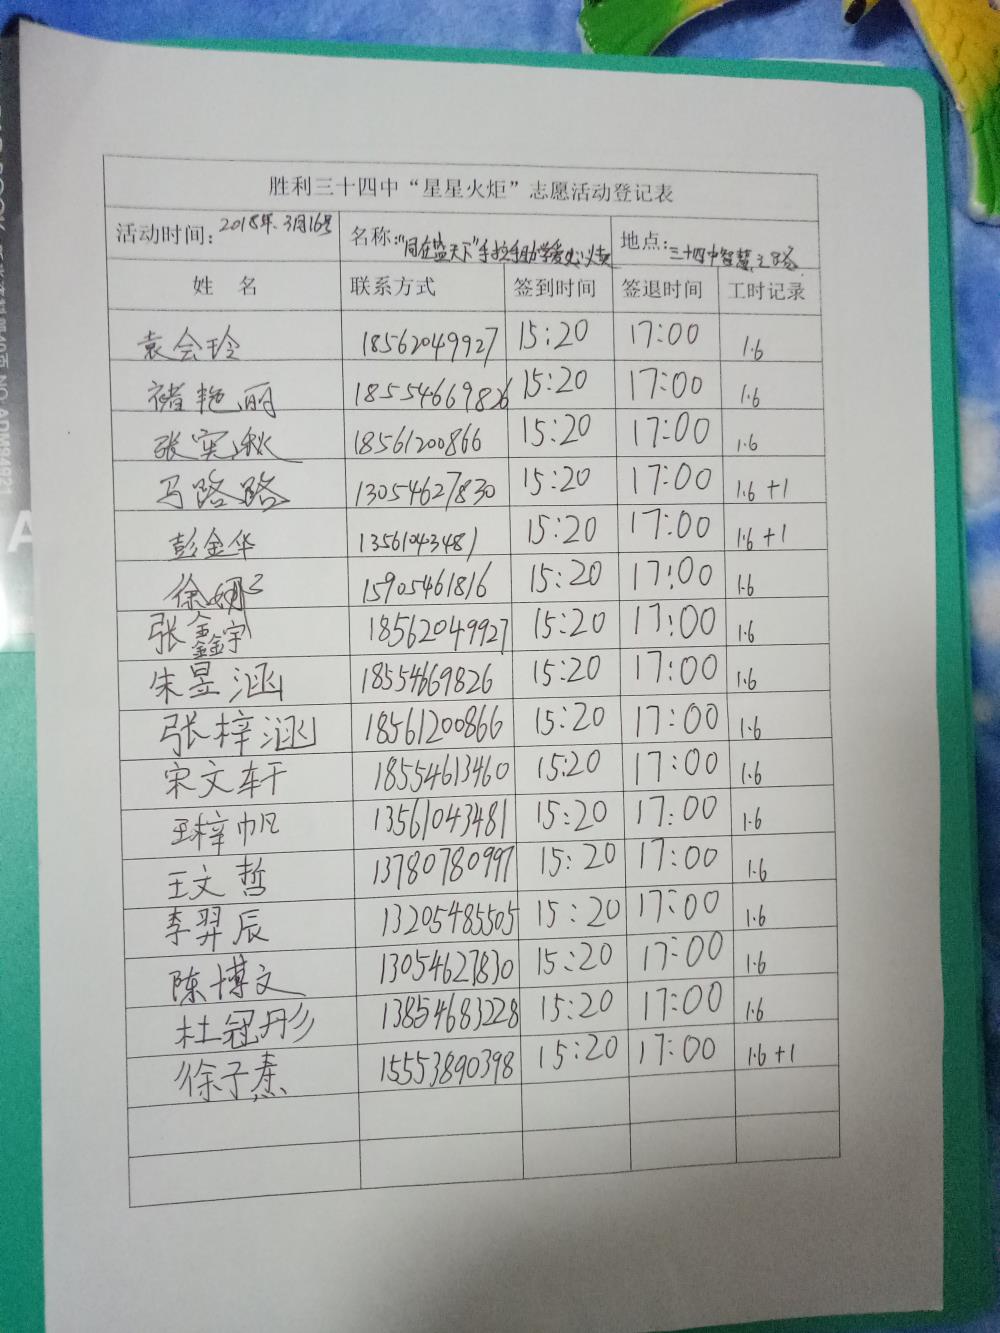 胜利三十四中“星星火炬”志愿活动登记表
活动时间：2018年.3月16号 名称：“同在蓝天下”手拉手助学爱心义卖 地点：三十四中智慧之路
姓 名 联系方式 签到时间 签退时间 工时记录
袁会玲 18562049927 15:20 17:00 1.6
褚艳丽 18554669826 15:20 17:00 1.6
张 18561200866 15:20 17:00 1.6
马路路 13054627830 15:20 17:00 1.6+1
彭金华 13561043481 15:20 17:00 1.6+1
徐娜 15905461816 15:20 17:00 1.6
张鑫宇 18562049927 15:20 17:00 1.6
朱昱涵 18554669826 15:20 17:00 1.6
张梓涵 18561200866 15:20 17:00 1.6
宋文轩 18554613460 15:20 17:00 1.6
王梓帆 13561043481 15:20 17:00 1.6
王文哲 13780780997 15:20 17:00 1.6
李羿辰 13205485505 15:20 17:00 1.6
陈博文 13054627830 15:20 17:00 1.6
杜冠彤 13854683228 15:20 17:00 1.6
徐子 15553890398 15:20 17:00 1.6+1